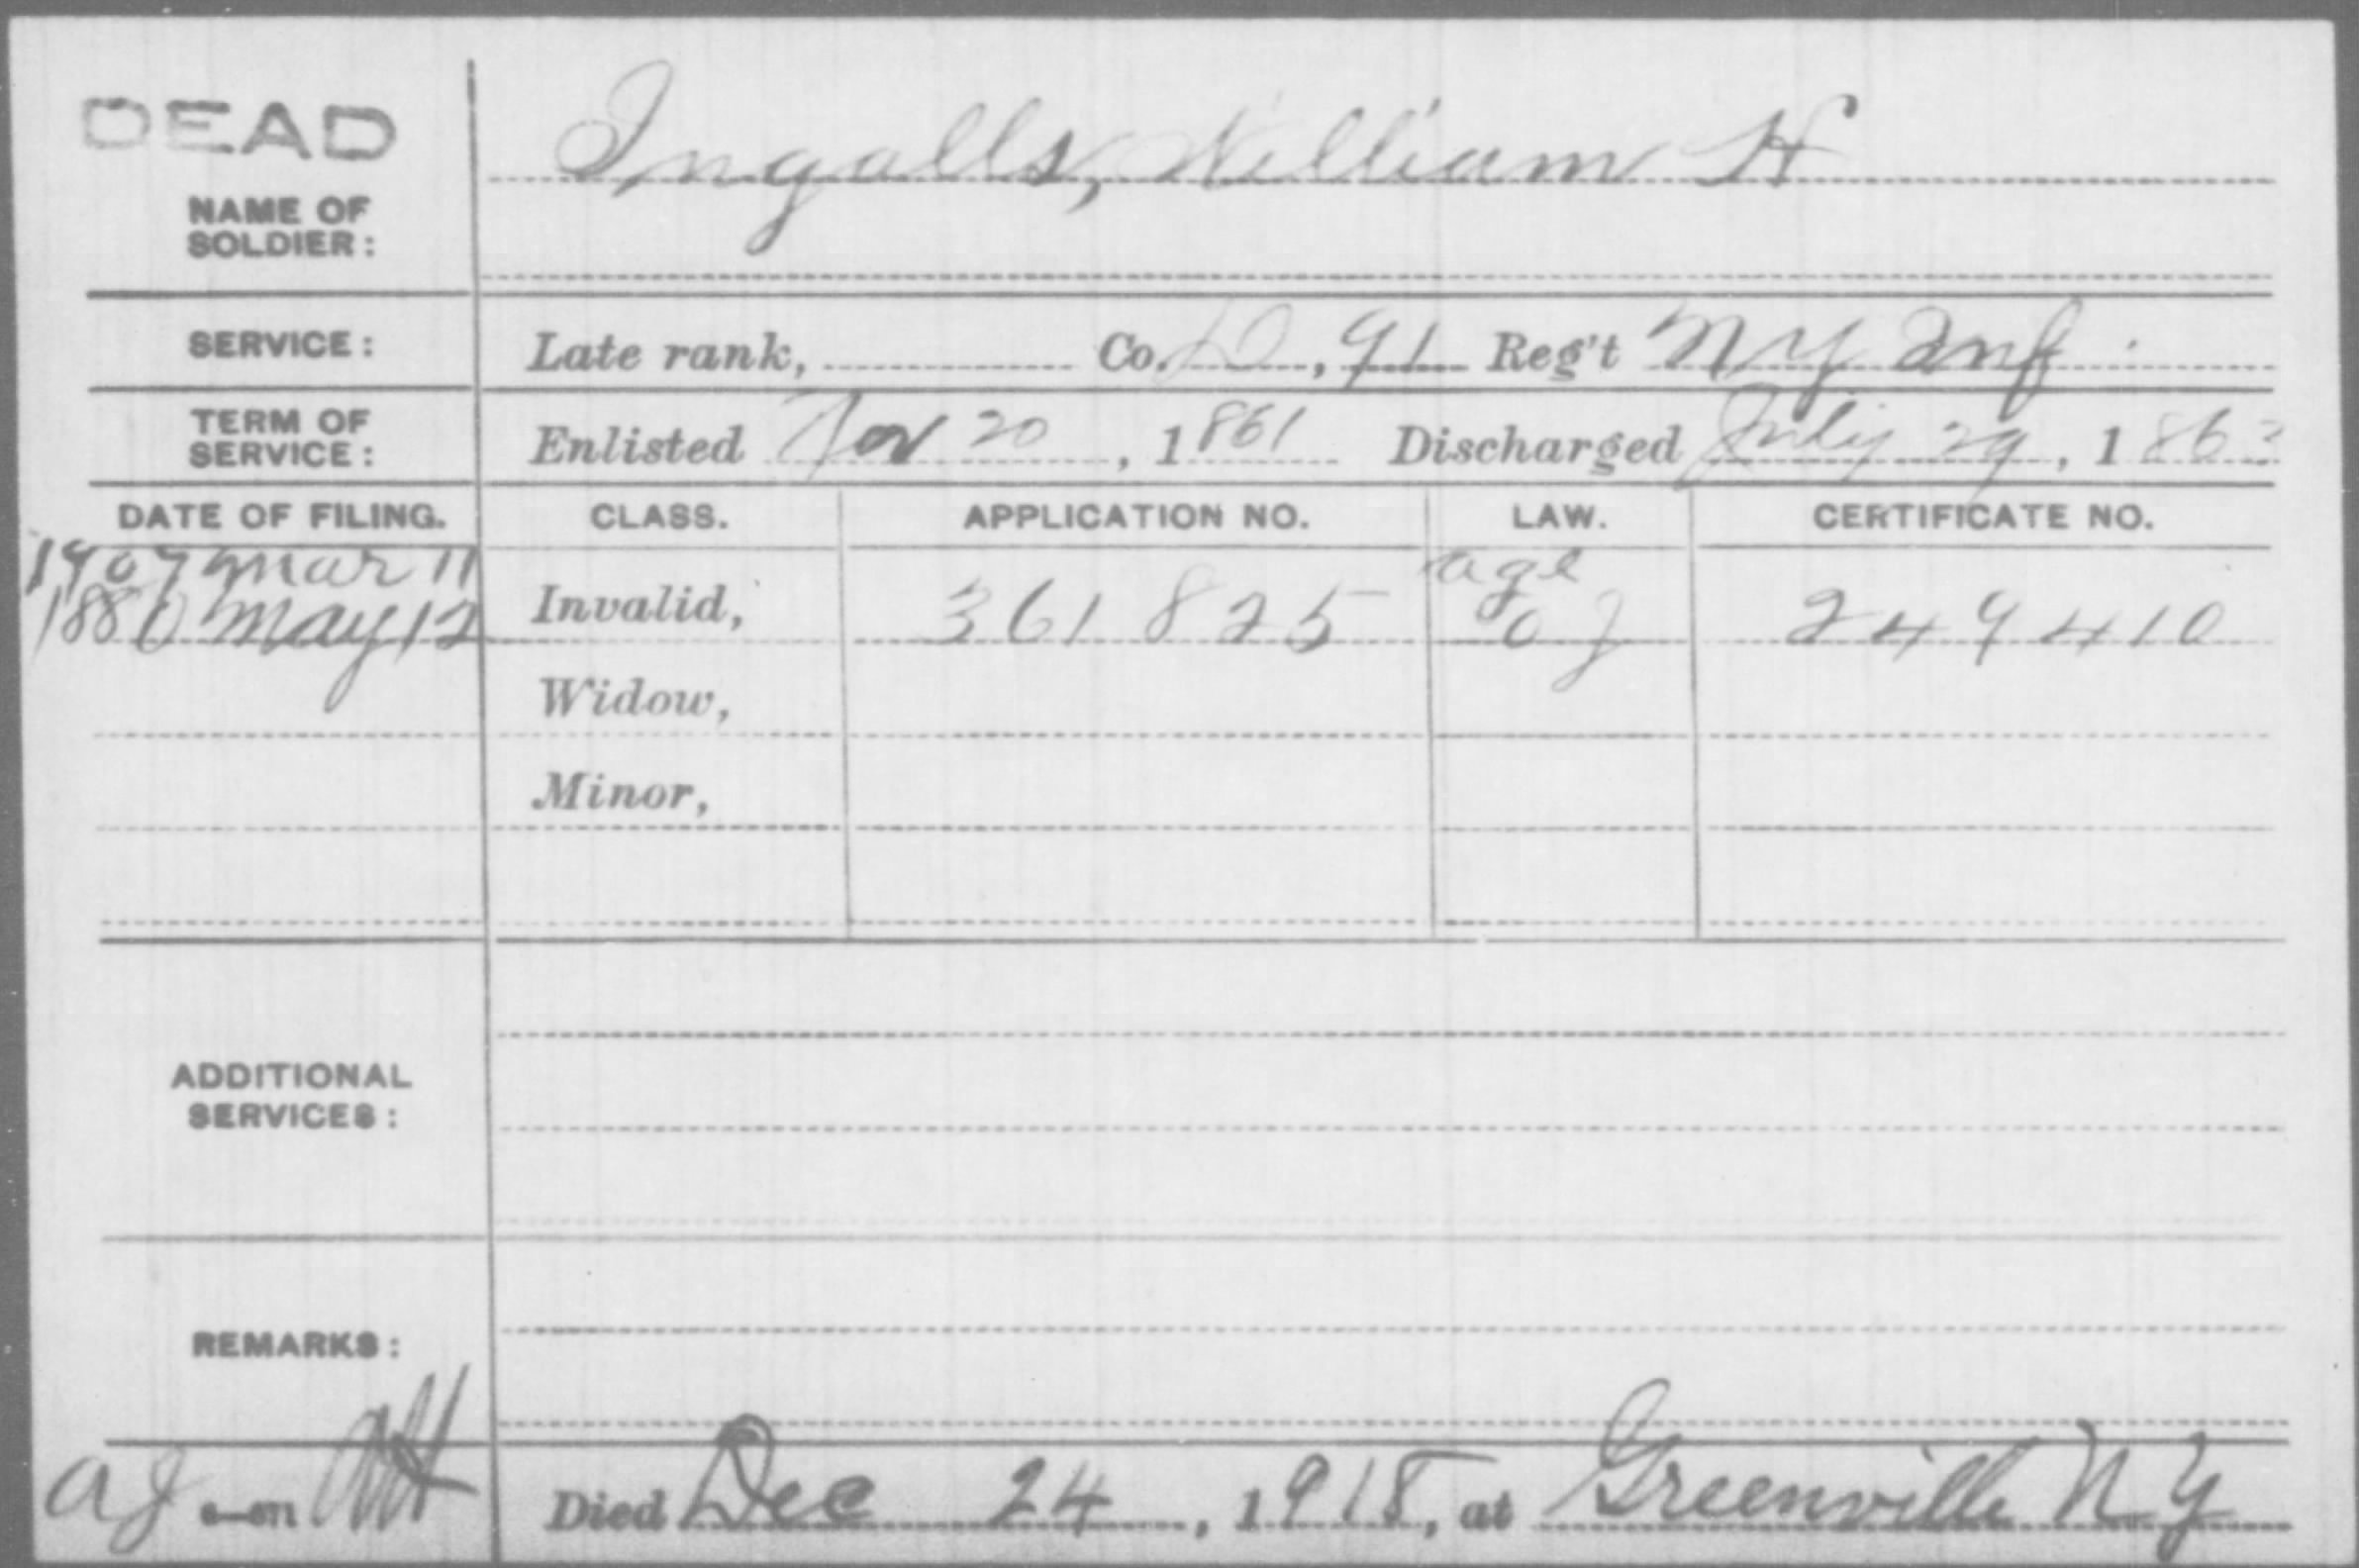 DEAD
Ingalls, William H
NAME OF
SOLDIER:
SERVICE: Late rank, Co. D, 91 Reg't NY Inf
TERM OF
SERVICE: Enlisted Nov 20, 1861 Discharged July 29, 186
DATE OF FILING. CLASS. APPLICATION NO. LAW. CERTIFICATE NO.
1907 Mar 11 age
1880 May 12 Invalid, 361825 249410
Widow,
Minor,
ADDITIONAL
SERVICES:
REMARKS:
Died Dec 24, 1918, at Greenville NY